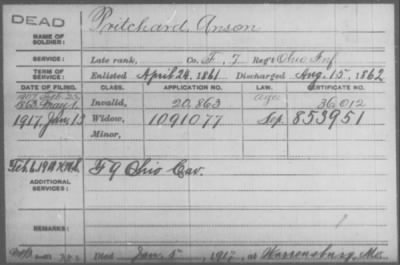 DEAD
Pritchard, Anson
NAME OF SOLDIER:
SERVICE:
Late rank, Co. F, 7 Reg't Ohio Inf.
TERM OF SERVICE:
Enlisted April 24, 1861 Discharged Aug. 15, 1862
DATE OF FILING. CLASS. APPLICATION NO. LAW. CERTIFICATE NO.
1863 May 1. Invalid, 20,863 36,012
1917, Jan, 13 Widow, 1091077 Sep. 853951
Minor,
ADDITIONAL SERVICES:
F 9 Ohio Cav.
REMARKS:
Died Jan. 5, 1917, at Warrensburg, Mo.